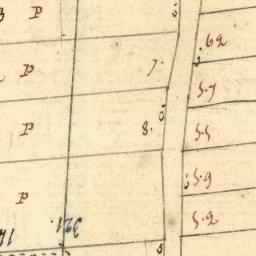 P
62
P
7.
5.7
P
8.
5.5
5.9
P
5.2
321.